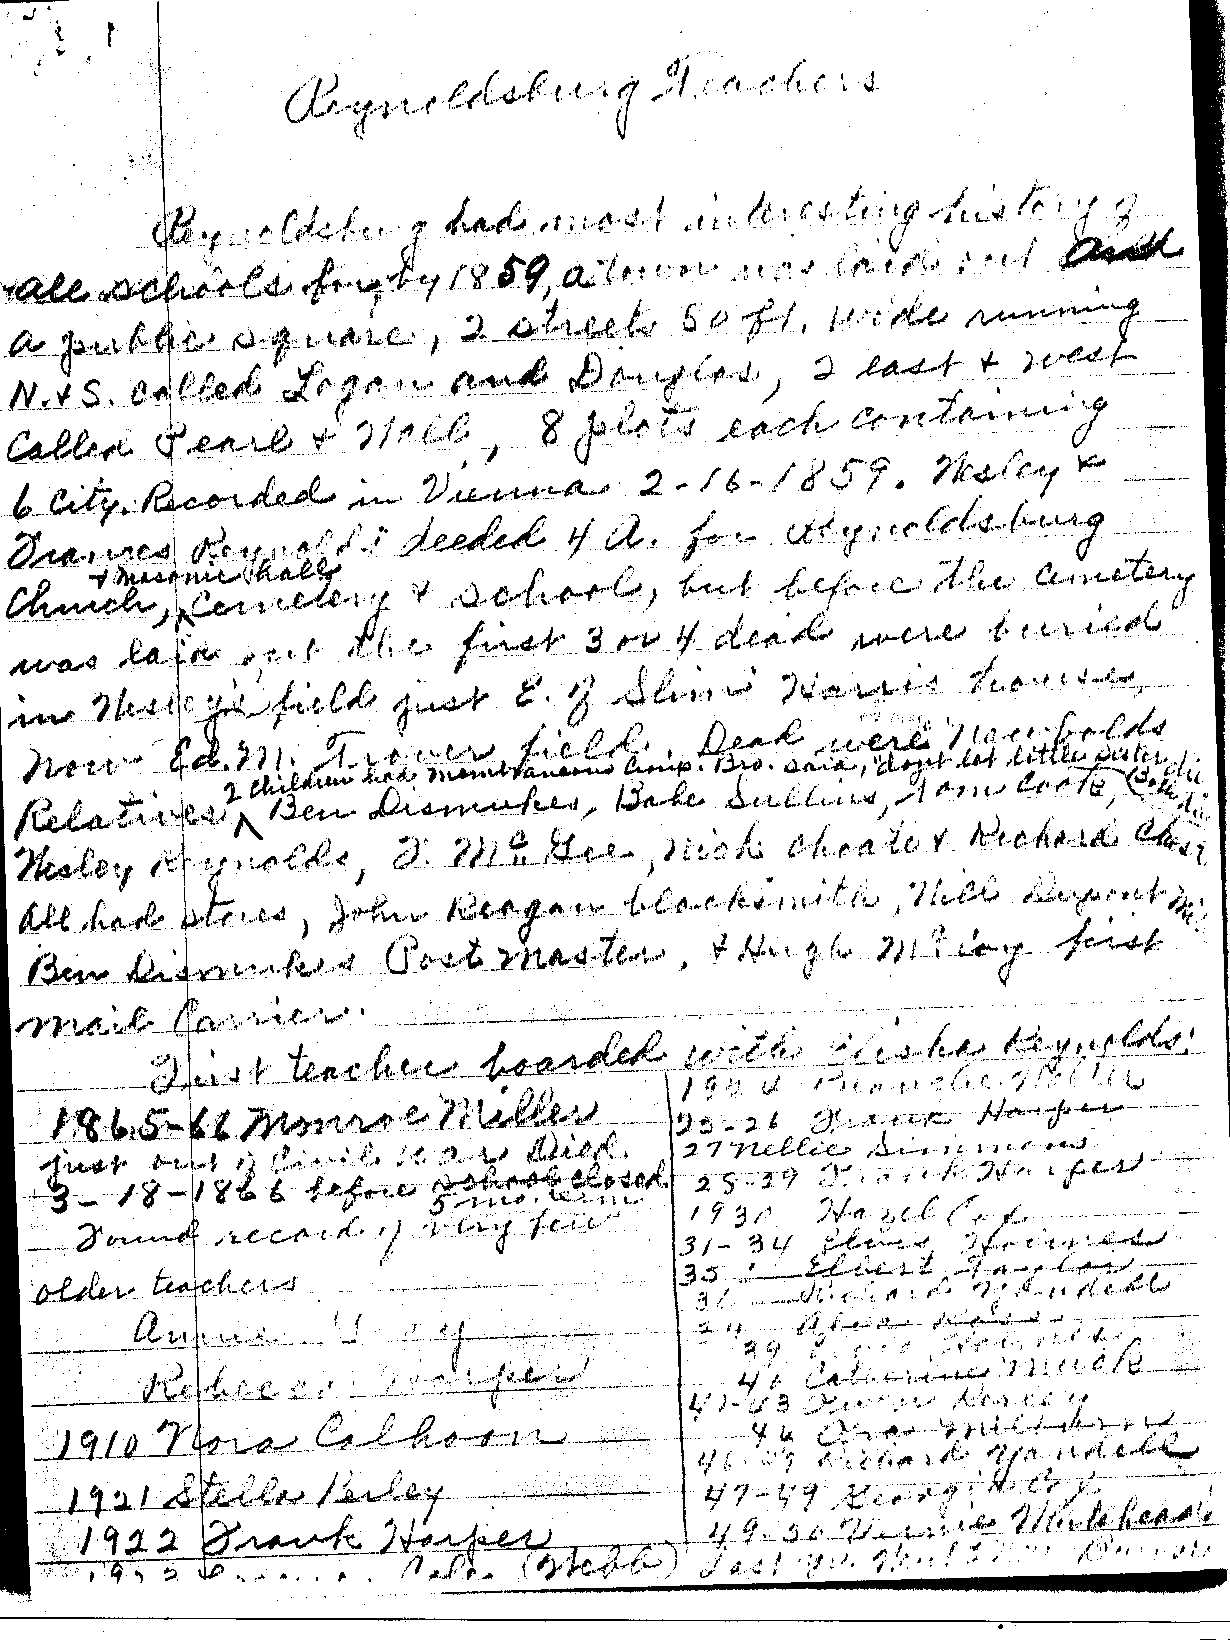 Reynoldsburg Teachers
Reynoldsburg had most interesting history of
all schools for, by 1859, a town was laid out and
a public square, 2 streets 50 ft. wide running
N. & S. called Logan and Douglas, 2 east & west
called Pearl & Wall, 8 plots each containing
6 City. Recorded in Vienna 2-16-1859. Wesley &
Frances Reynolds deeded 4 A. for Reynoldsburg
& Masonic hall
Church, cemetery & school, but before the cemetery
was laid out the first 3 or 4 dead were buried
in Wesley's field just E. of Slim Harris house,
now Ed. M. Trover field. Dead were Newbolds
2 children had membraneous croup. Bro. said, "don't let little sister die
Relatives Ben Dismukes, Babe Sullins, Tom Cook,
Wesley Reynolds, F. McGee, Nick Choate & Richard
all had stores, John Reagan blacksmith, Will Dupont
Ben Dismukes Post Master, & Hugh first
mail Carrier.
First teacher boarded with Elisha Reynolds:
1865-66 Monroe Miller
just out of Civil War Died
3-18-1866 before school closed
5 mo. term
Found record of very few
older teachers
Annie
Rebecca Harper
1910 Nora Calhoon
1921 Stella Kerley
1922 Frank Harper
(Webb)
1924 Blanche
25-26 Frank Harper
27 Nellie Simmons
28-29 Frank Harper
1930 Hazel Cox
31-34 Elvis Holmes
35 Elbert Taylor
36 Richard Yandell
39 Holmes
40 Catherine Mück
Kerley
Milburn
46-47 Richard Yandell
47-49 Georgia Cox
49-50 Vernie Whitehead
Last yr.